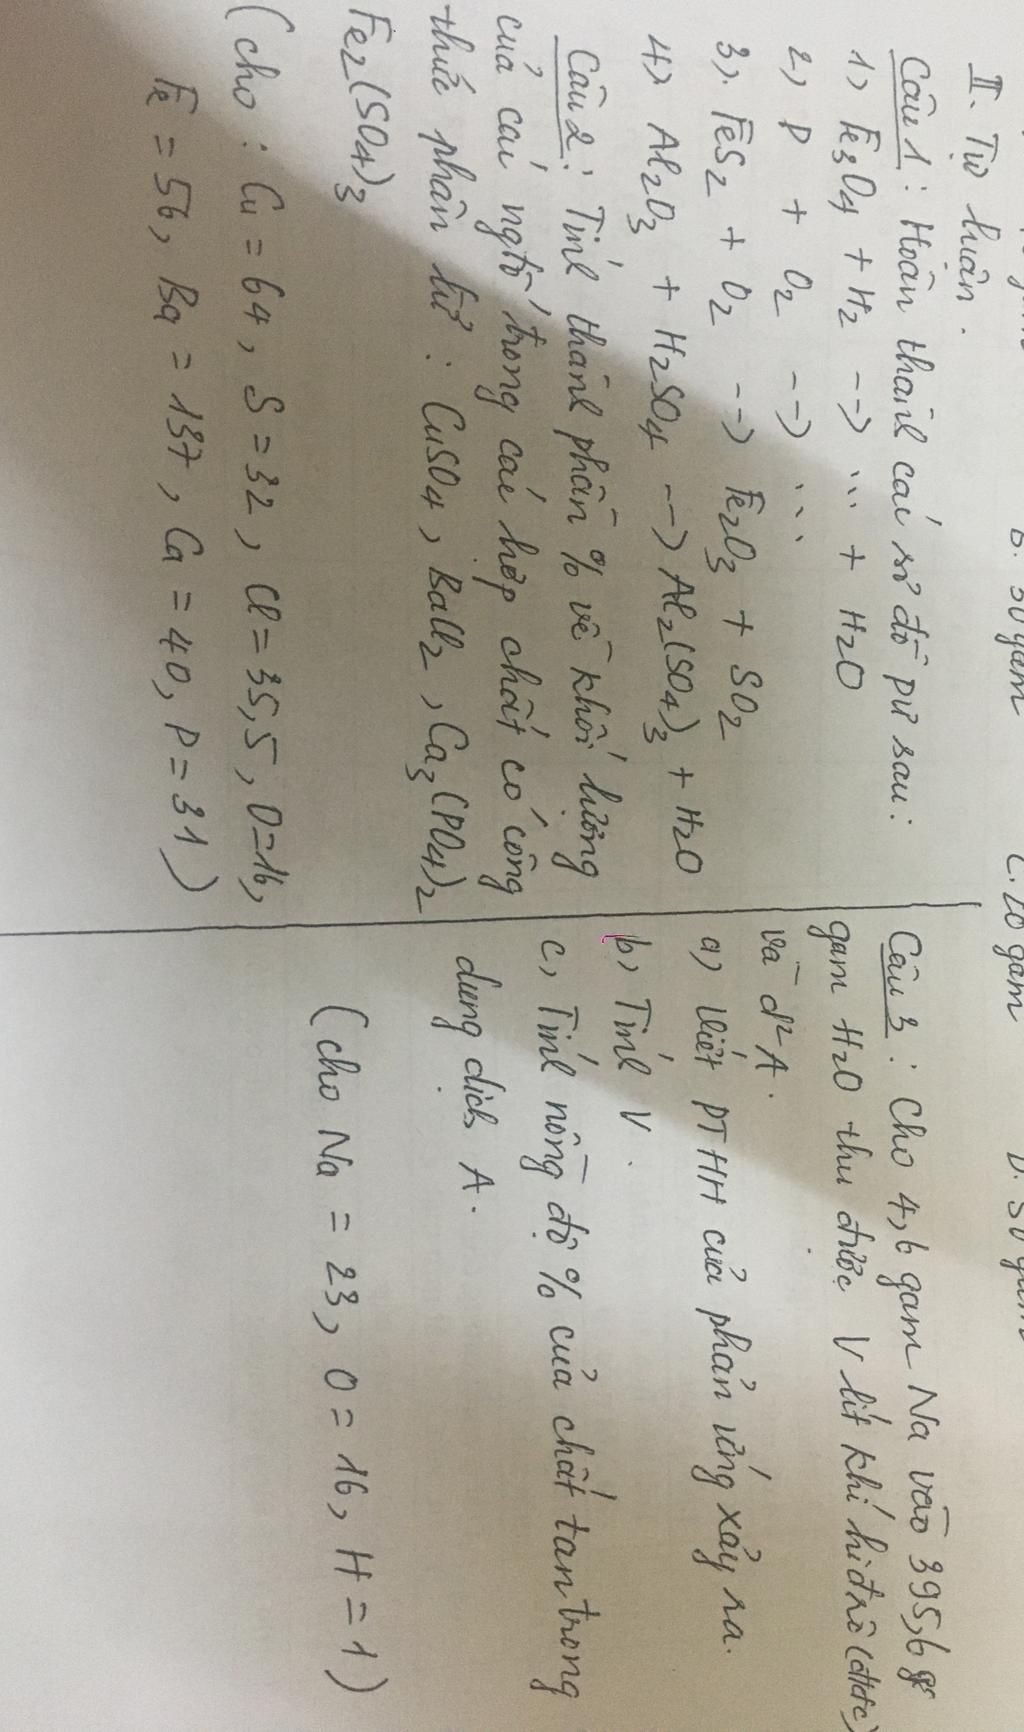 B. 30 gam
C. 20 gam
D. 50 gam
II. Tự luận.
Câu 1: Hoàn thành các sơ đồ pư sau:
1) Fe₃O₄ + H₂ --> ... + H₂O
2) P + O₂ --> ...
3) FeS₂ + O₂ --> Fe₂O₃ + SO₂
4) Al₂O₃ + H₂SO₄ --> Al₂(SO₄)₃ + H₂O
Câu 2: Tính thành phần % về khối lượng
của các ngtố trong các hợp chất có công
thức phân tử: CuSO₄, BaCl₂, Ca₃(PO₄)₂
Fe₂(SO₄)₃
(cho: Cu = 64, S = 32, Cl = 35,5, O=16,
Fe = 56, Ba = 137, Ca = 40, P = 31)
Câu 3: Cho 4,6 gam Na vào 395,6 g
gam H₂O thu được V lít khí hiđrô (đktc)
và d² A.
a) Viết PTHH của phản ứng xảy ra.
b) Tính V.
c) Tính nồng độ % của chất tan trong
dung dịch A.
(cho Na = 23, O = 16, H = 1)